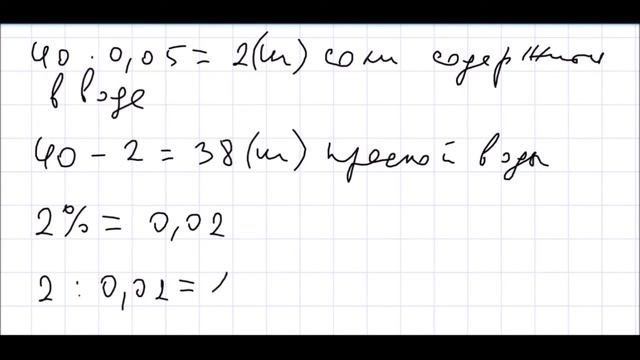 40 · 0,05 = 2(т) соли содержится
в воде
40 - 2 = 38(т) пресной воды
2% = 0,02
2 : 0,02 =